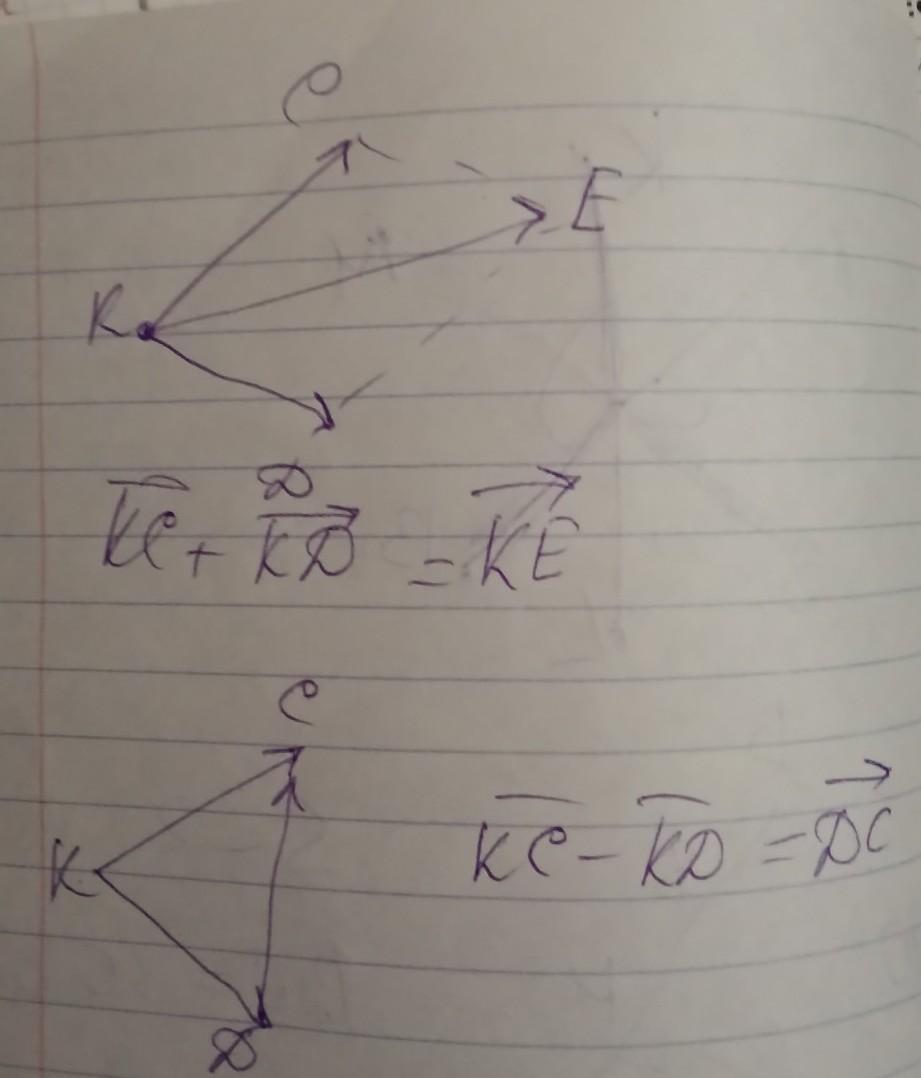 C
E
K
D
KC + KD = KE
C
K
KC - KD = DC
D